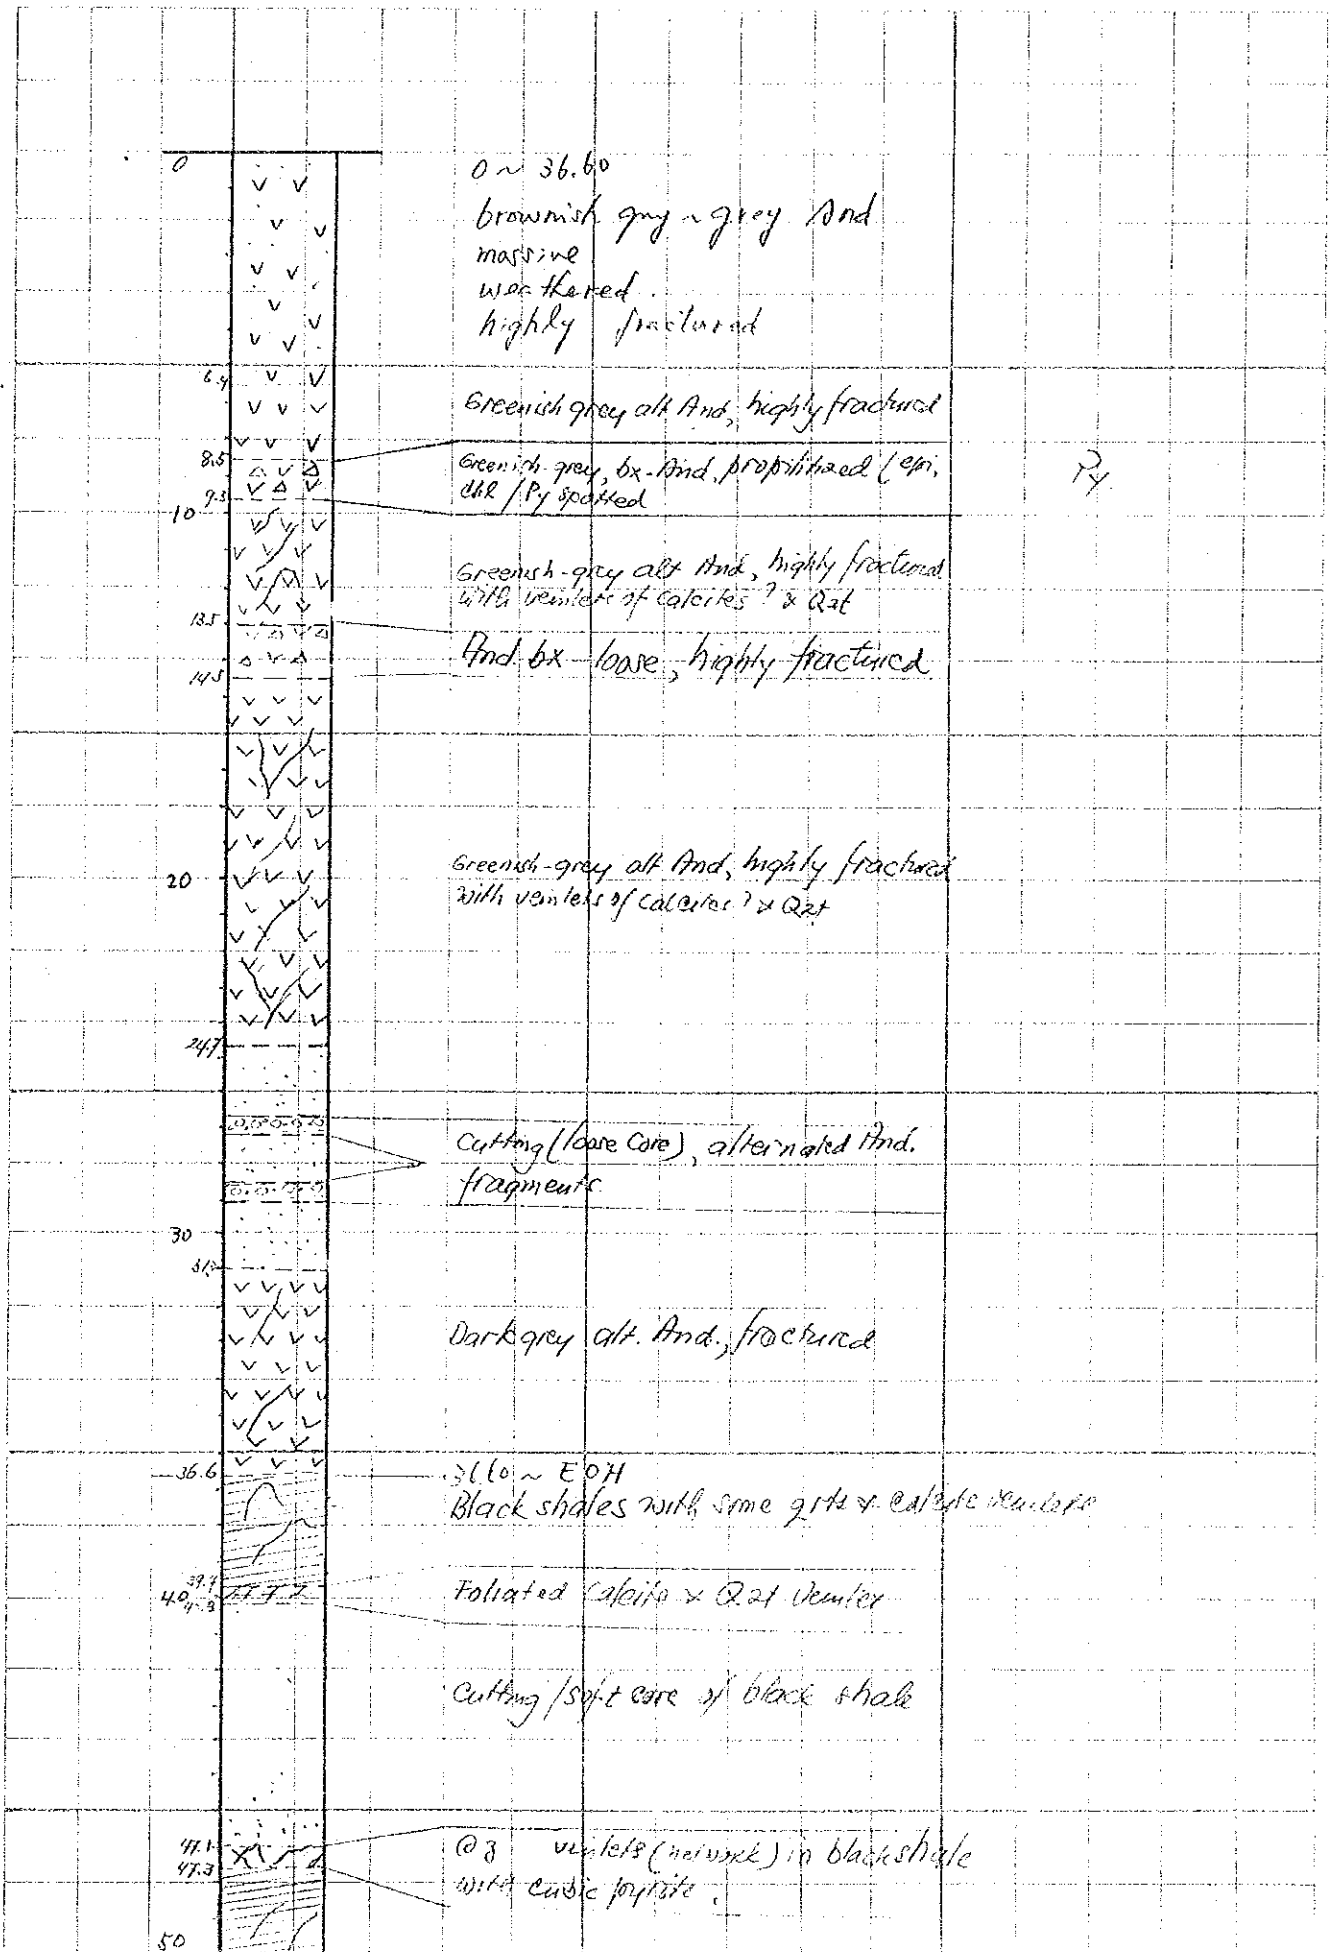 0
0 ~ 36.60
brownish grey ~ grey And
massive
weathered.
highly fractured
6.4
Greenish grey alt And, highly fractured
8.5
Greenish-grey, bx-And, propilitized (epi,
chl / Py spotted
Py
9.3
10
Greenish-grey alt And, highly fractured
with veinlets of calcites? & Qzt
13.5
And bx - loose, highly fractured
14.5
20
Greenish-grey alt And, highly fractured
with veinlets of calcites? & Qzt
24.7
Cutting (loose Core), alternated And.
fragments
30
Dark grey alt. And., fractured
36.6
36.60 ~ EOH
Black shales with some qtz & calcite veinlets
39.7
40
Foliated Calcite & Qzt Veinlet
Cutting / soft core of black shale
47.1
veinlets (network) in black shale
47.3
with cubic pyrite.
50